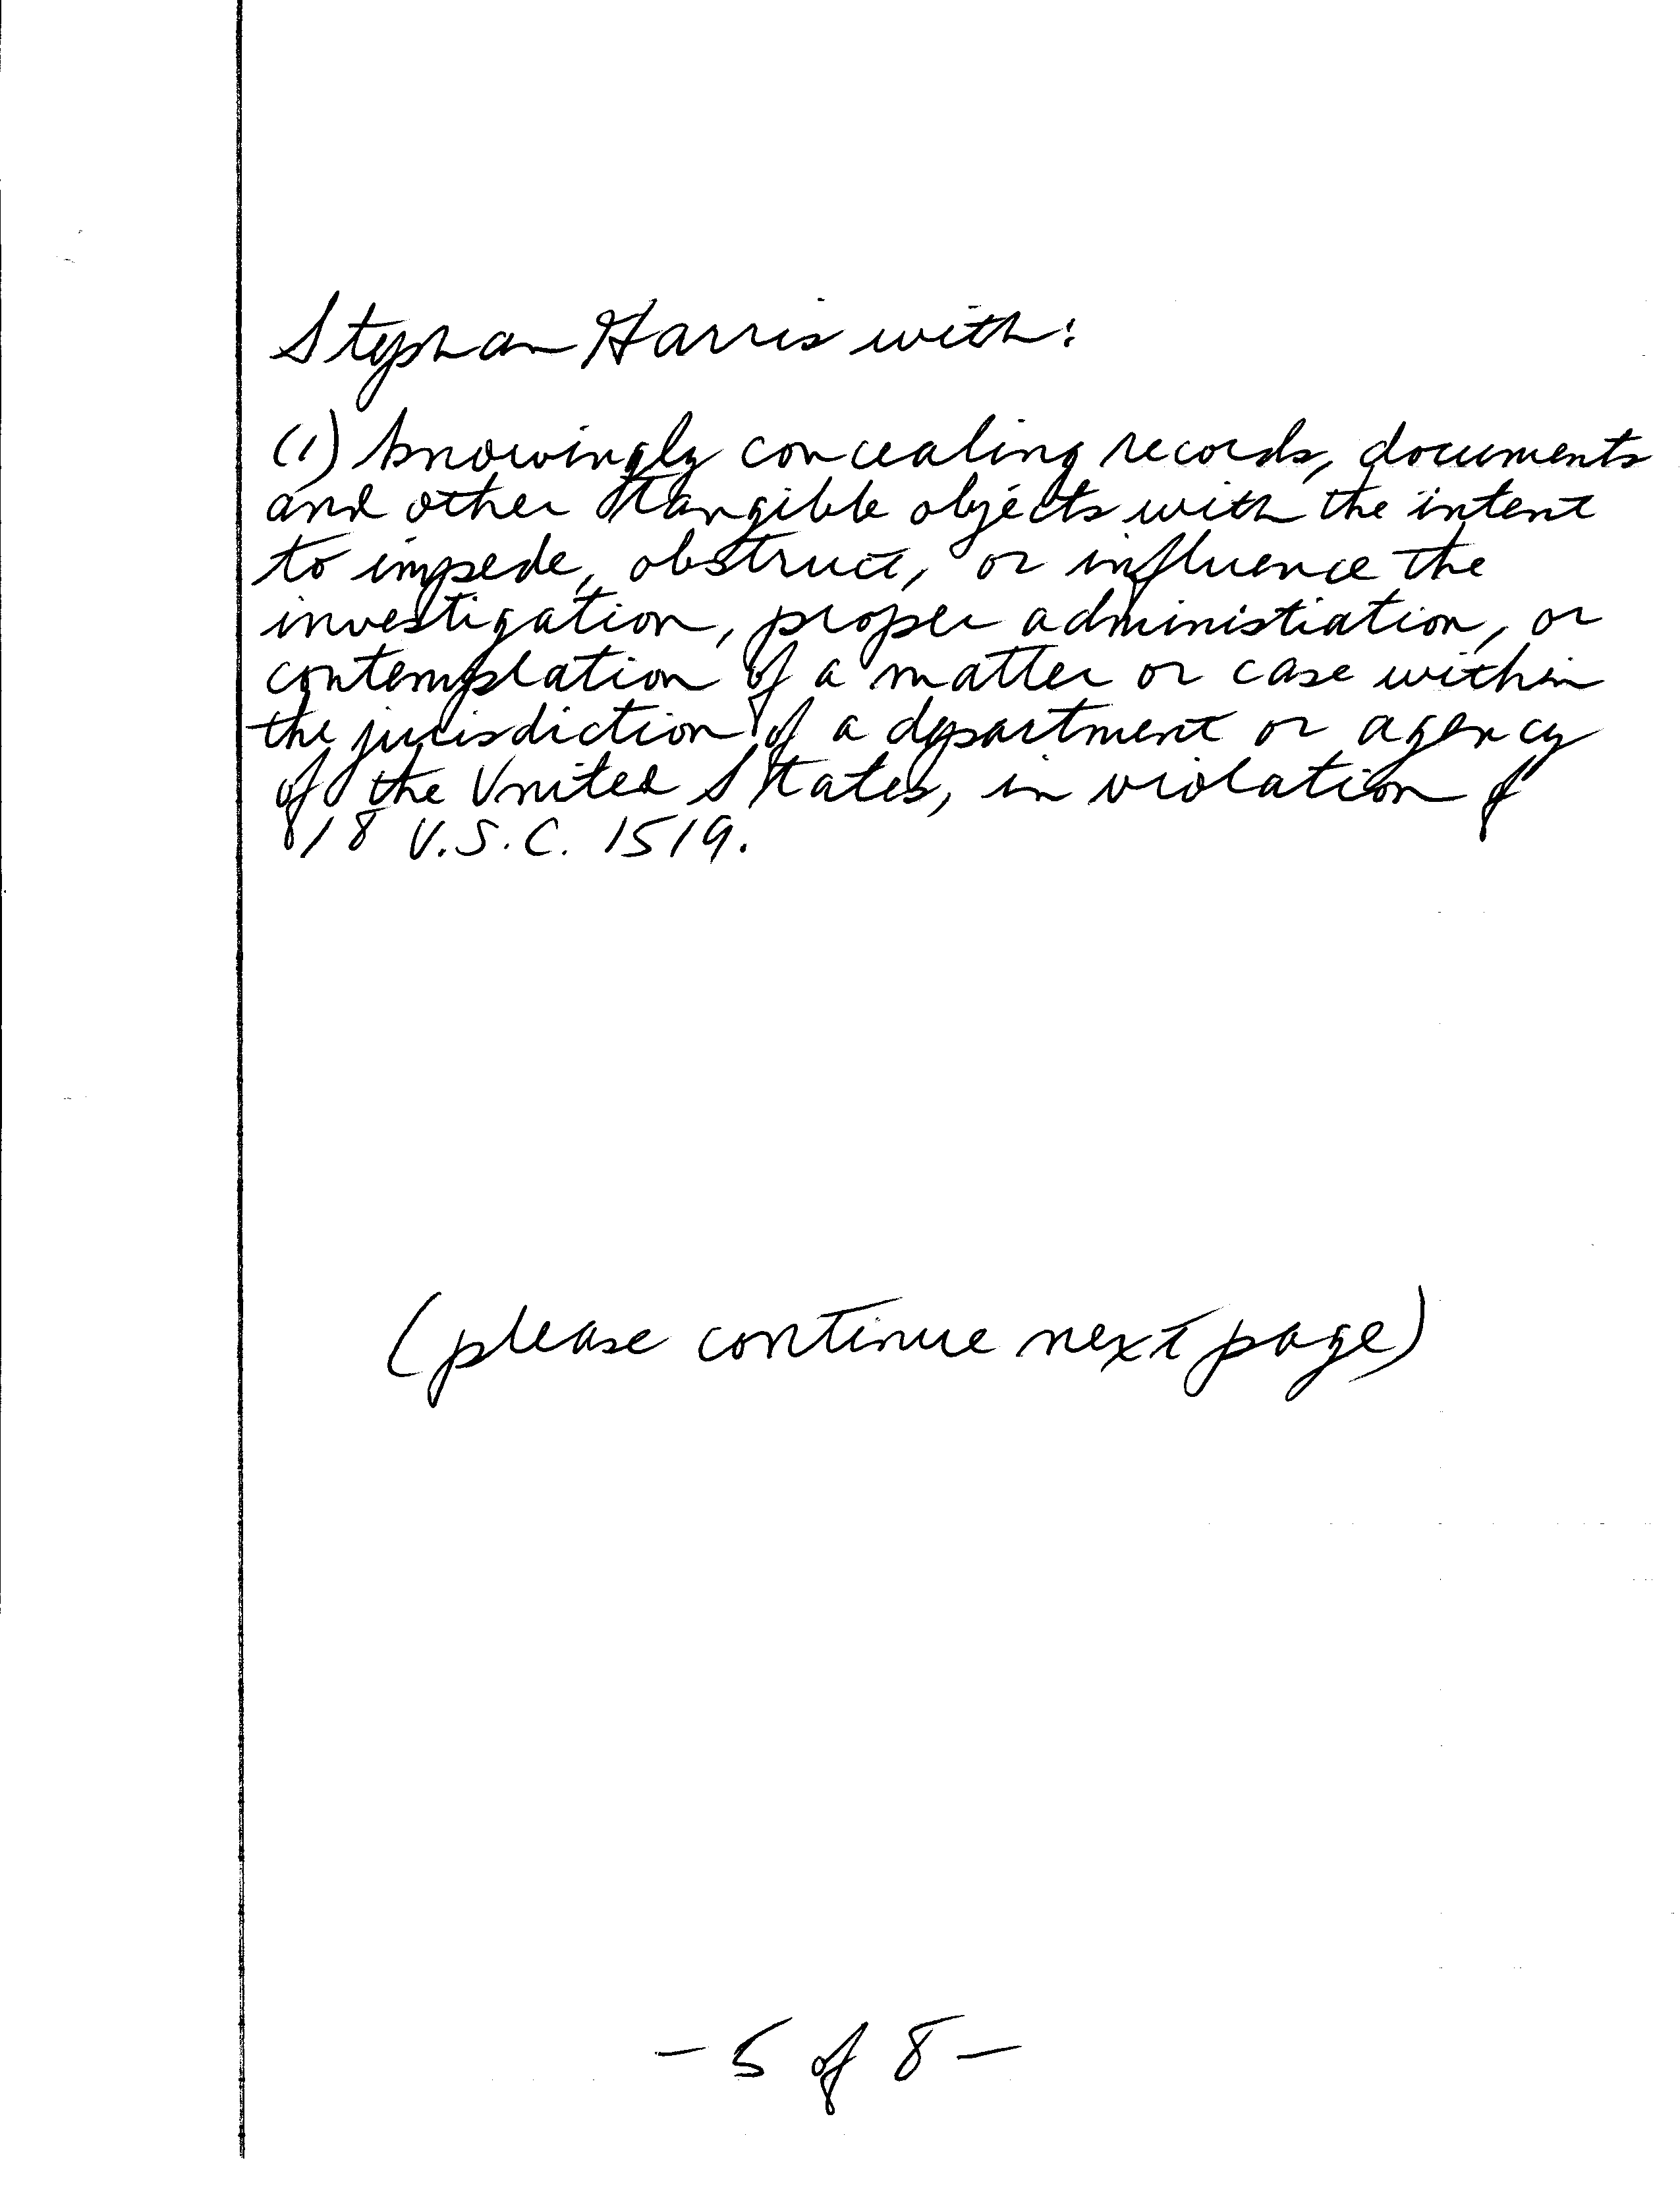 Stephan Harris with:
(1) knowingly concealing records, documents
and other tangible objects with the intent
to impede, obstruct, or influence the
investigation, proper administration, or
contemplation of a matter or case within
the jurisdiction of a department or agency
of the United States, in violation of
18 U.S.C. 1519.
(please continue next page)
- 5 of 8 -